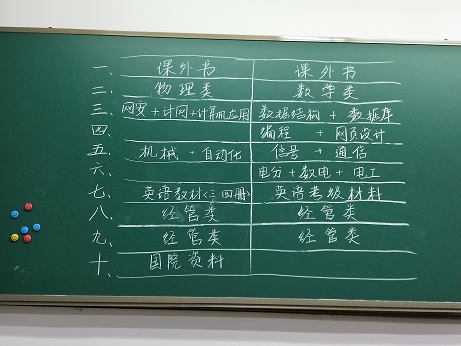 一、 课外书 课外书
二、 物理类 数学类
三、 网安+计网+计算机应用 数据结构 + 数据库
四、 编程 + 网页设计
五、 机械 + 自动化 信号 + 通信
六、 电分 + 数电 + 电工
七、 英语教材(三四册) 英语考级材料
八、 经管类 经管类
九、 经管类 经管类
十、 国院资料